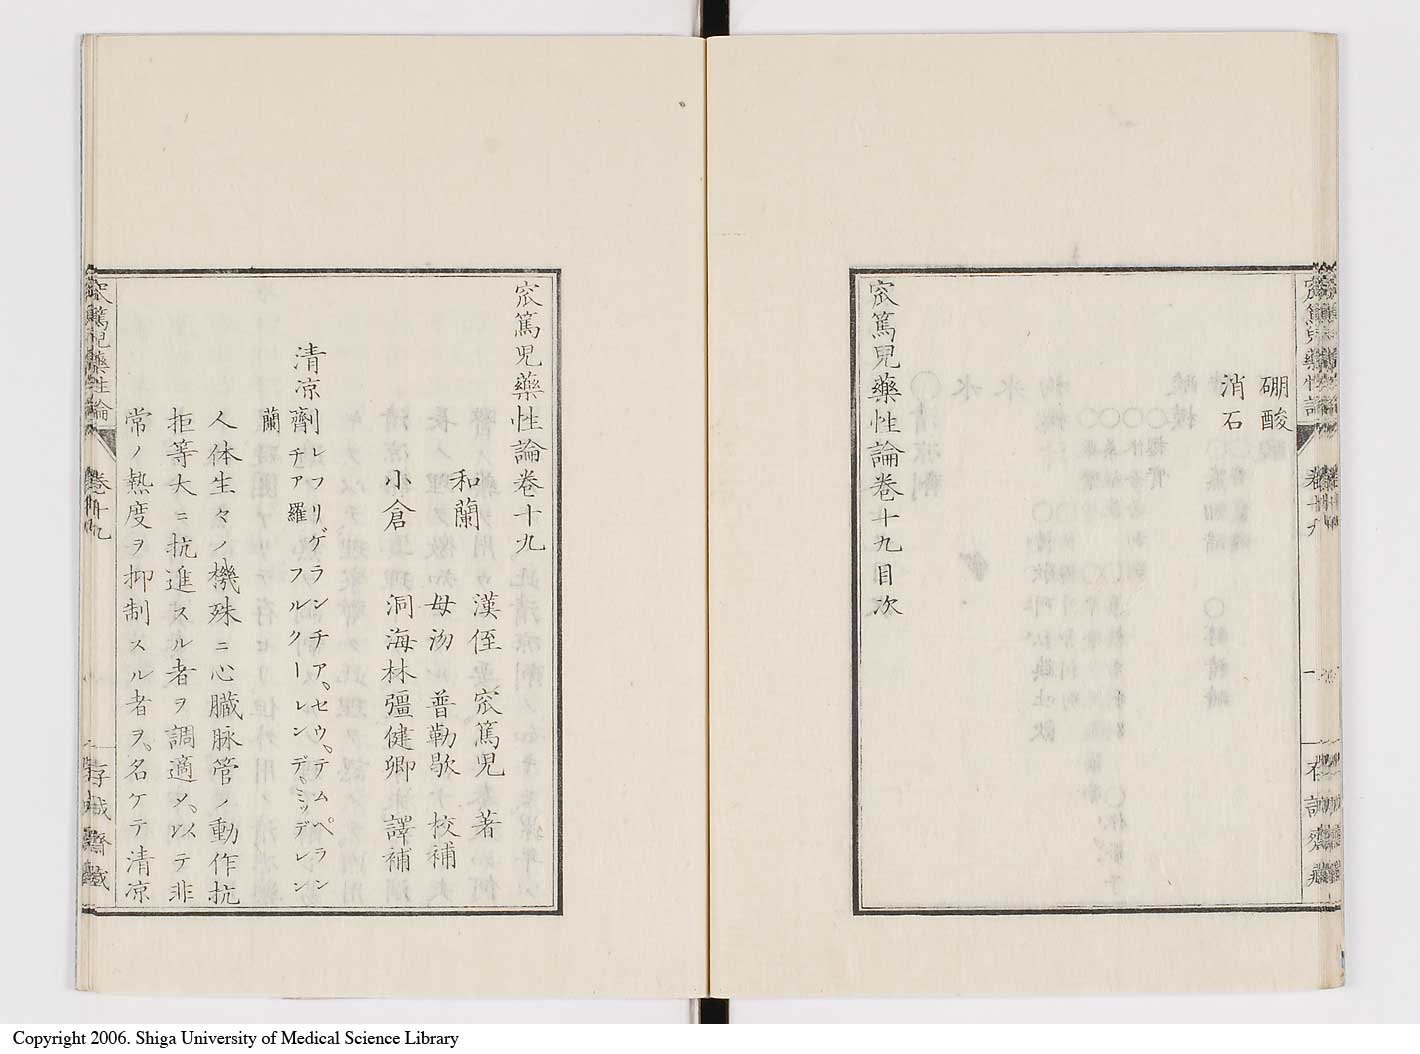 硼酸
消石
窊篤児藥性論卷十九目次
窊篤児藥性論卷十九
和蘭 漢侄 窊篤児 著
母泐 普勒歇 校補
小倉 洞海林彊健卿 譯補
清凉劑
蘭 レフリゲランチア、セウ、テムペランチア
羅 フルクーレンデ、ミッデレン
人体生々ノ機殊ニ心臓脉管ノ動作抗
拒等大ニ抗進スル者ヲ調適シ、以テ非
常ノ熱度ヲ抑制スル者ヲ、名ケテ清凉
窊篤児藥性論
卷十九
一
存誠齋藏
Copyright 2006. Shiga University of Medical Science Library